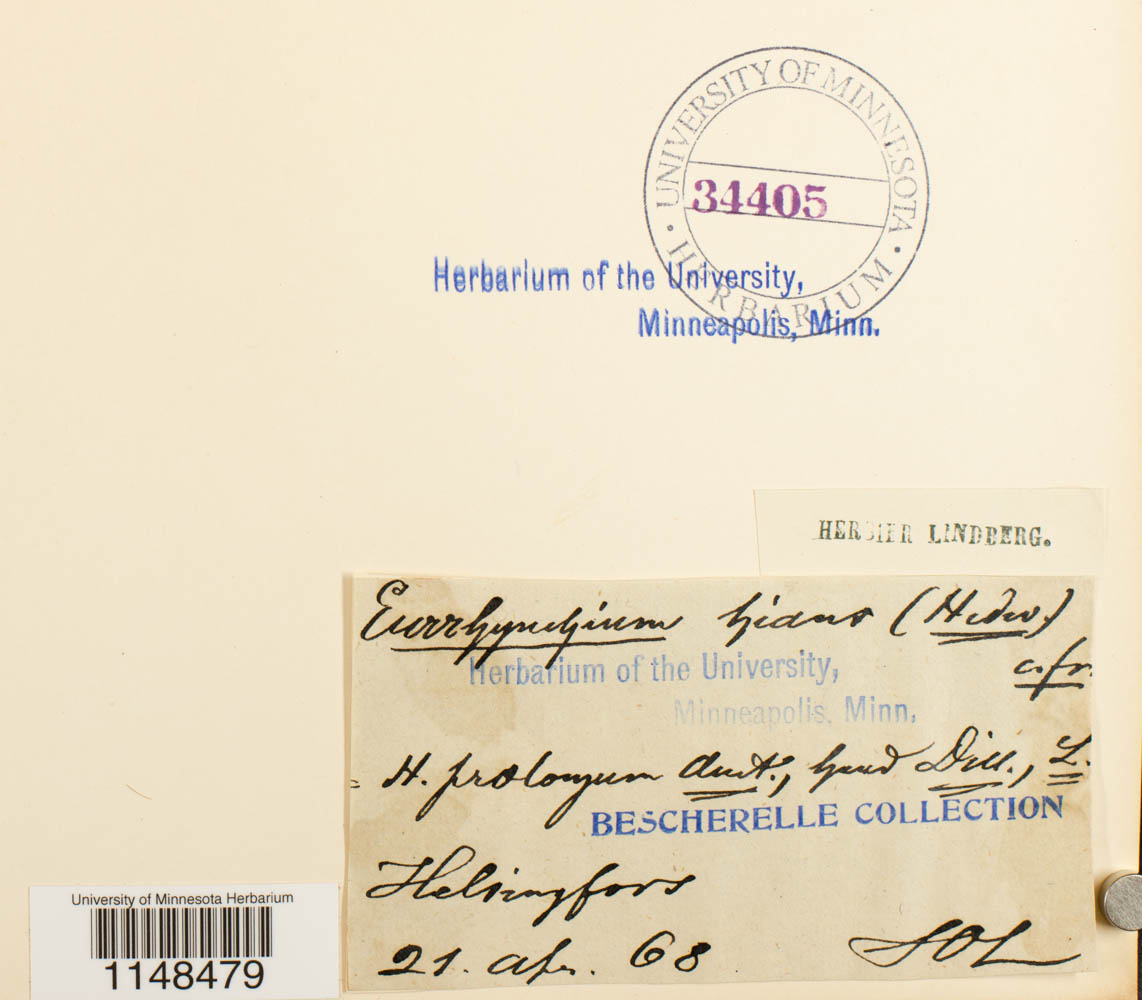 UNIVERSITY OF MINNESOTA
34405
· HERBARIUM ·
Herbarium of the University,
Minneapolis, Minn.
HERBIER LINDBERG.
Eurrhynchium hians (Hedw.)
c. fr.
Herbarium of the University,
Minneapolis, Minn.
= H. prælongum Auct., haud Dill., L.
BESCHERELLE COLLECTION
Helsingfors
21. Apr. 68 SOL
University of Minnesota Herbarium
1148479